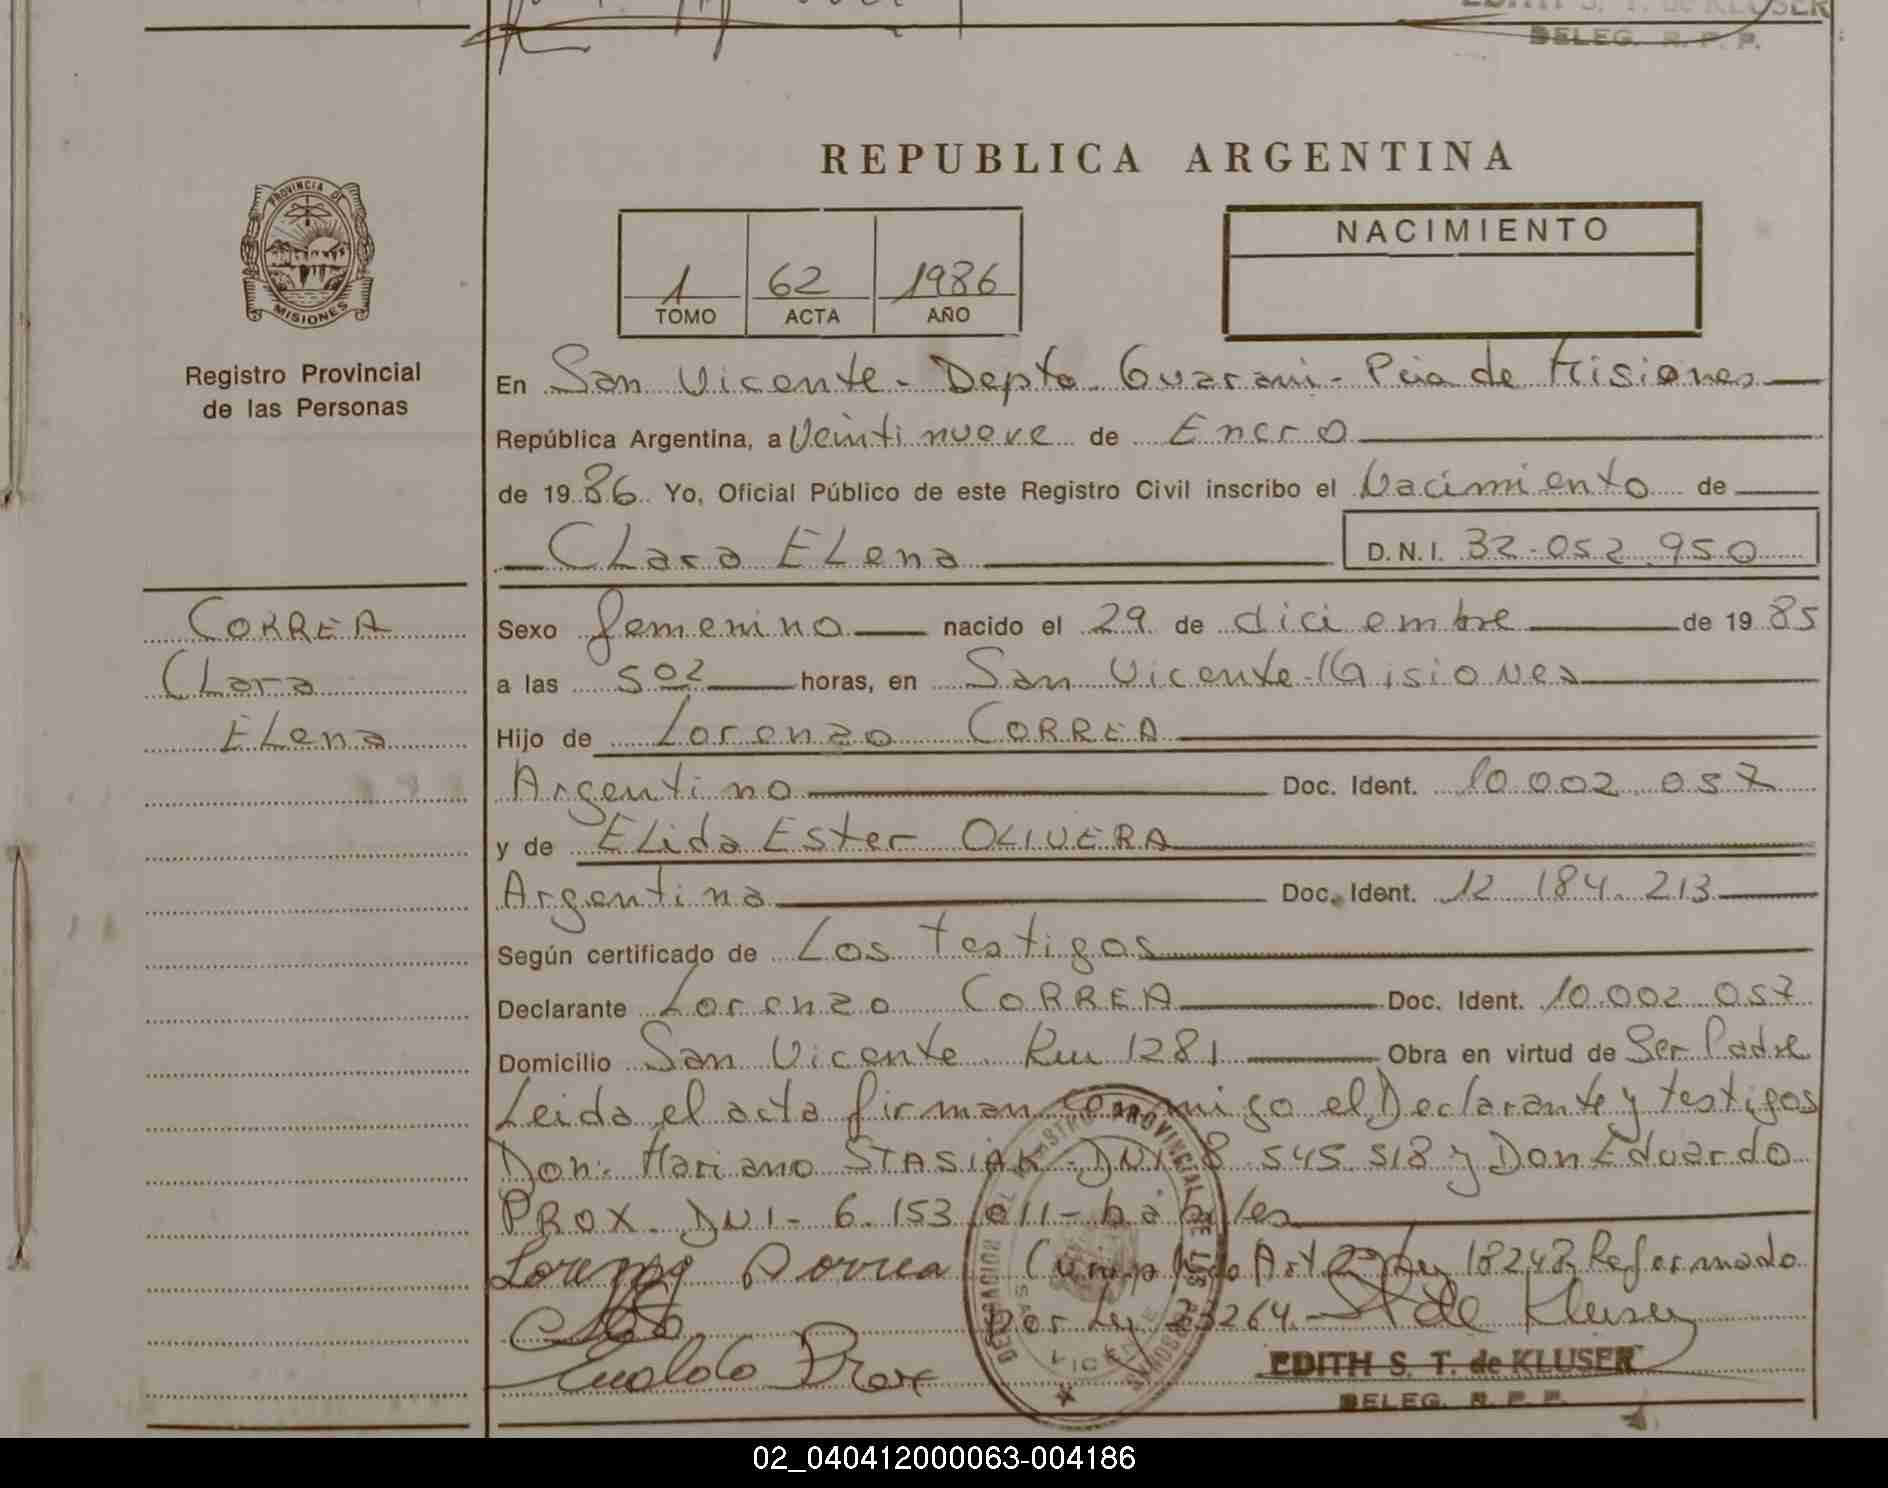 EDITH S. T. de KLUSER
DELEG. R. P. P.
REPUBLICA ARGENTINA
PROVINCIA DE
MISIONES
Registro Provincial
de las Personas
1 62 1986
TOMO ACTA AÑO
NACIMIENTO
En San Vicente - Depto. Guarani - Pcia de Misiones
República Argentina, a Veinti nueve de Enero
de 1986 Yo, Oficial Público de este Registro Civil inscribo el Nacimiento de
Clara Elena D.N.I. 32.052.950
CORREA
Clara
Elena
Sexo femenino nacido el 29 de diciembre de 1985
a las 5 02 horas, en San Vicente - Misiones
Hijo de Lorenzo CORREA
Argentino Doc. Ident. 10.002.057
y de Elida Ester OLIVERA
Argentina Doc. Ident. 12.184.213
Según certificado de Los testigos
Declarante Lorenzo CORREA Doc. Ident. 10.002.057
Domicilio San Vicente Km 1281 Obra en virtud de Ser Padre
Leida el acta firman conmigo el Declarante y testigos
Don: Mariano STASIAK - DNI 8.545.518 y Don Eduardo
PROX. DNI - 6.153.011 - habiles
Lorenzo Correa Cumplido Art 2º Ley 18248 Reformado
por Ley 23264. de Kluser
Prox
EDITH S. T. de KLUSER
DELEG. R. P. P.
02_040412000063-004186